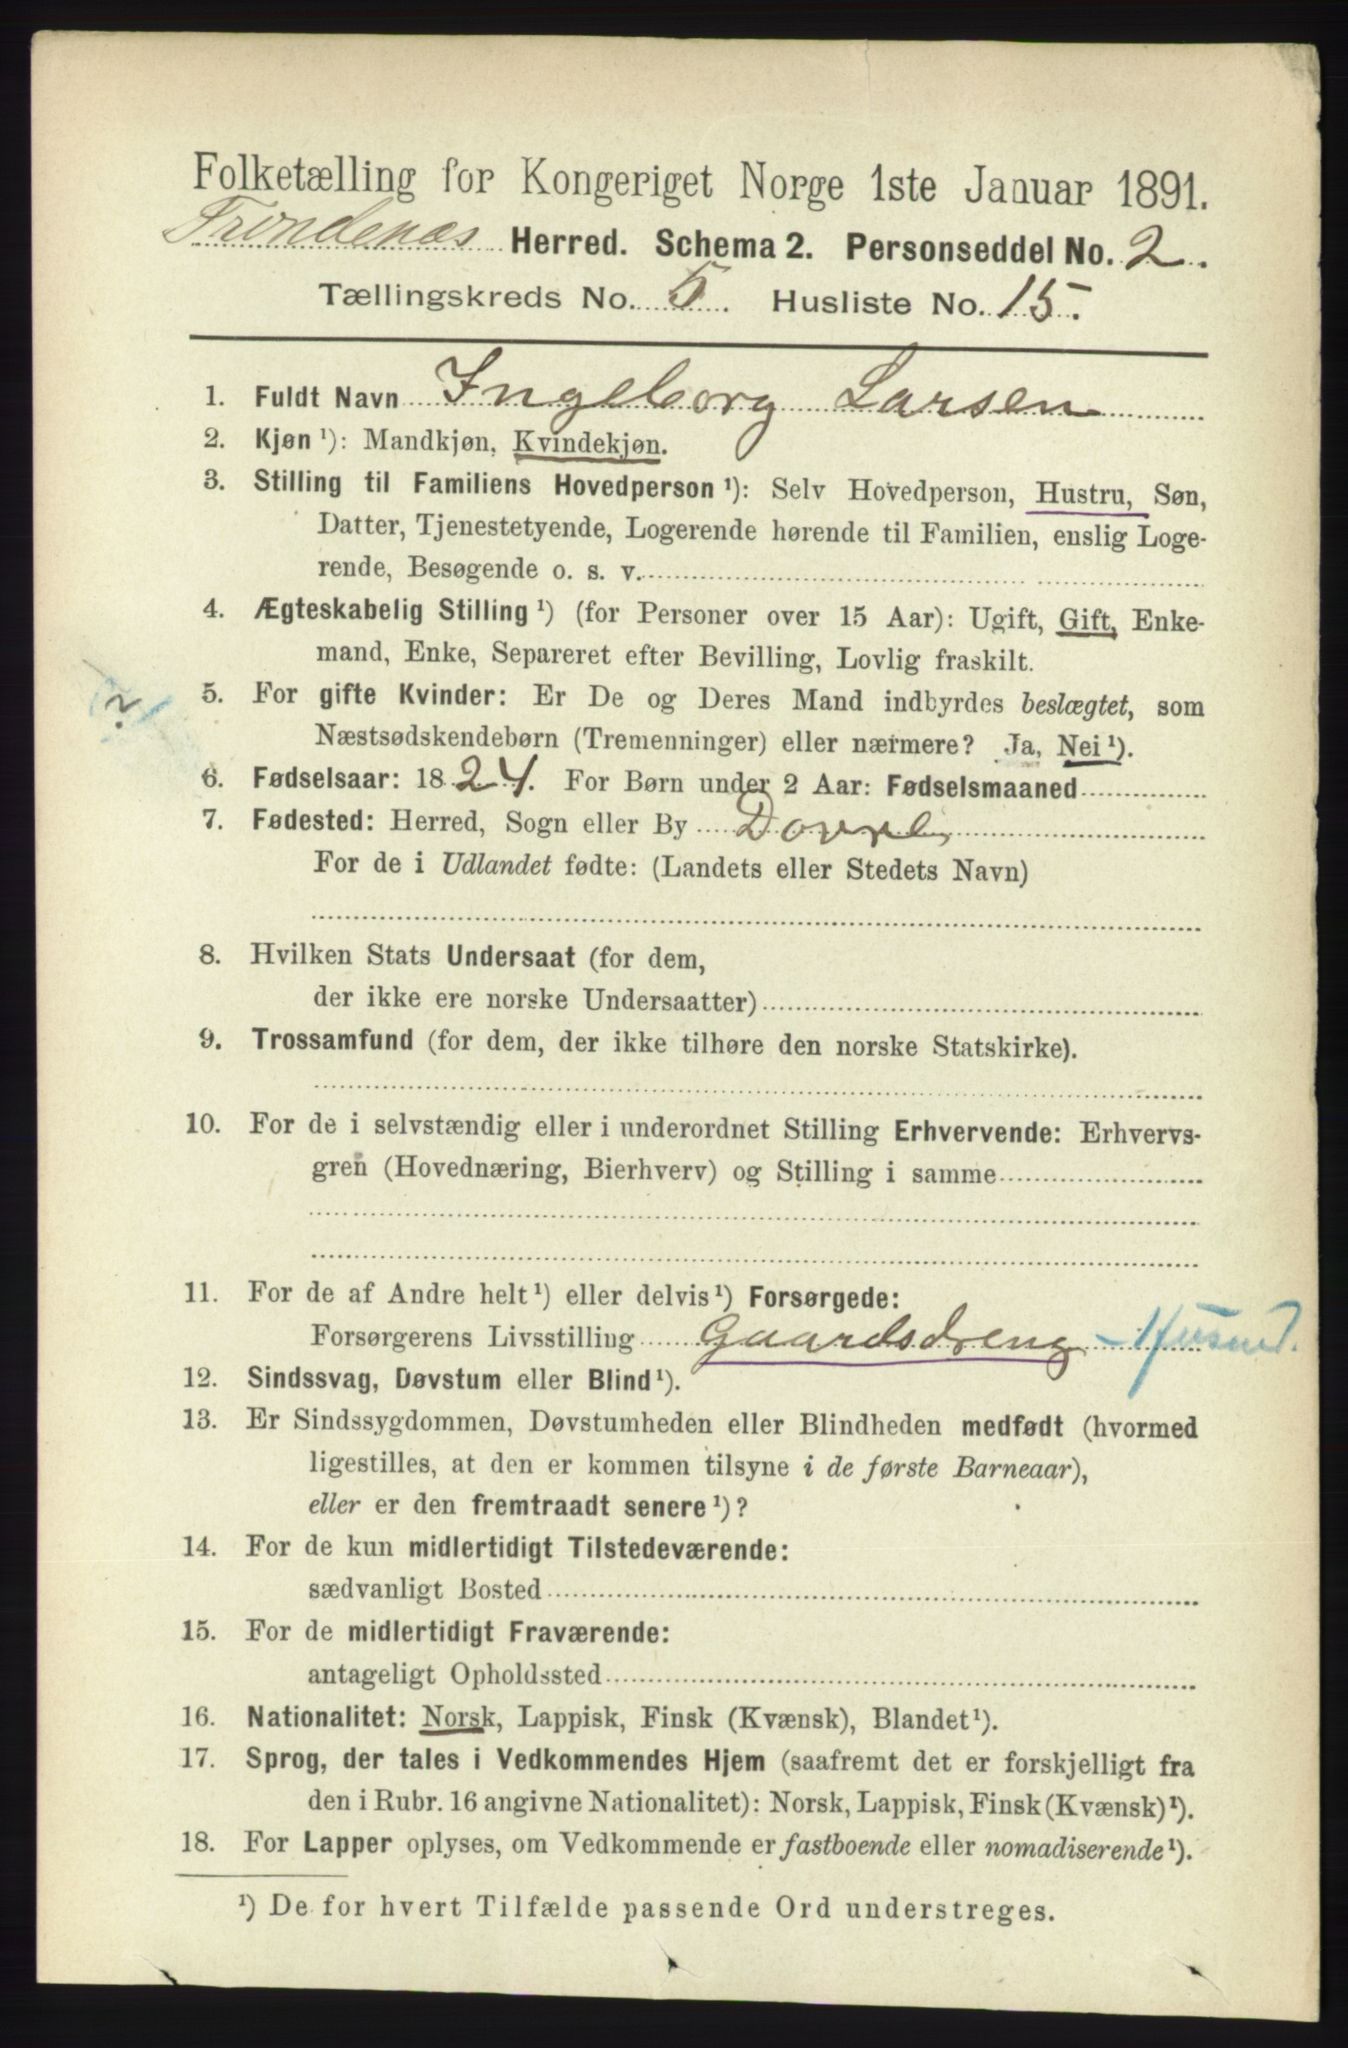 Folketælling for Kongeriget Norge 1ste Januar 1891.
Trondenæs Herred. Schema 2. Personseddel No. 2.
Tællingskreds No. 5. Husliste No. 15.
1. Fuldt Navn Ingeborg Larsen
2. Kjøn ¹): Mandkjøn, Kvindekjøn.
3. Stilling til Familiens Hovedperson ¹): Selv Hovedperson, Hustru, Søn,
Datter, Tjenestetyende, Logerende hørende til Familien, enslig Loge-
rende, Besøgende o. s. v.
4. Ægteskabelig Stilling ¹) (for Personer over 15 Aar): Ugift, Gift, Enke-
mand, Enke, Separeret efter Bevilling, Lovlig fraskilt.
5. For gifte Kvinder: Er De og Deres Mand indbyrdes beslægtet, som
Næstsødskendebørn (Tremenninger) eller nærmere? Ja, Nei ¹).
6. Fødselsaar: 1824. For Børn under 2 Aar: Fødselsmaaned
7. Fødested: Herred, Sogn eller By
For de i Udlandet fødte: (Landets eller Stedets Navn)
8. Hvilken Stats Undersaat (for dem,
der ikke ere norske Undersaatter)
9. Trossamfund (for dem, der ikke tilhøre den norske Statskirke).
10. For de i selvstændig eller i underordnet Stilling Erhvervende: Erhvervs-
gren (Hovednæring, Bierhverv) og Stilling i samme
11. For de af Andre helt ¹) eller delvis ¹) Forsørgede:
Forsørgerens Livsstilling Gaardsdreng - Husmd.
12. Sindssvag, Døvstum eller Blind ¹).
13. Er Sindssygdommen, Døvstumheden eller Blindheden medfødt (hvormed
ligestilles, at den er kommen tilsyne i de første Barneaar),
eller er den fremtraadt senere ¹)?
14. For de kun midlertidigt Tilstedeværende:
sædvanligt Bosted
15. For de midlertidigt Fraværende:
antageligt Opholdssted
16. Nationalitet: Norsk, Lappisk, Finsk (Kvænsk), Blandet ¹).
17. Sprog, der tales i Vedkommendes Hjem (saafremt det er forskjelligt fra
den i Rubr. 16 angivne Nationalitet): Norsk, Lappisk, Finsk (Kvænsk) ¹).
18. For Lapper oplyses, om Vedkommende er fastboende eller nomadiserende ¹).
¹) De for hvert Tilfælde passende Ord understreges.